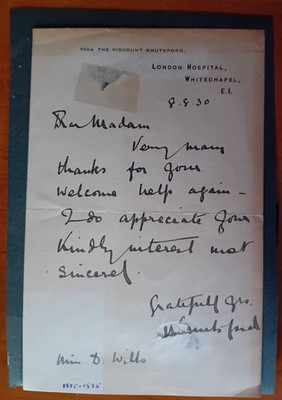 FROM THE VISCOUNT KNUTSFORD.
LONDON HOSPITAL,
WHITECHAPEL,
E.I.
8.8.30
Dear Madam
Very many
thanks for your
welcome help again -
I do appreciate your
kindly interest most
sincerely.
Gratefully yrs.
Knutsford
Miss D. Wills